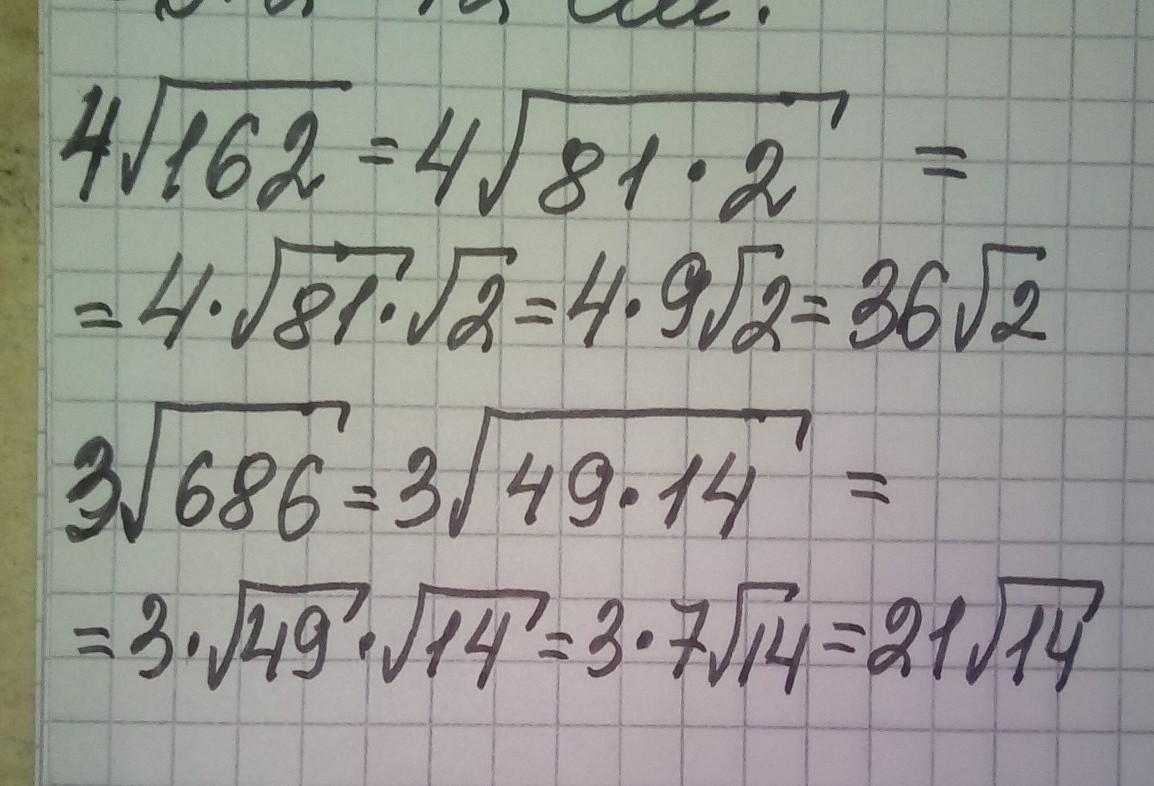 4√162 = 4√81·2 =
= 4·√81·√2 = 4·9√2 = 36√2
3√686 = 3√49·14 =
= 3·√49·√14 = 3·7√14 = 21√14